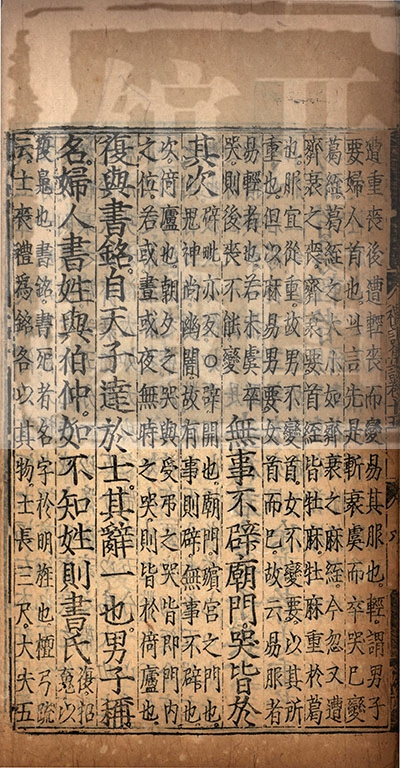 遭重喪後遭輕喪而變易其服也輕謂男子
要婦人首也此言先是斬衰虞而卒哭已變
葛絰葛絰之大小如齊衰之麻絰今忽又遭
齊衰之喪齊衰要首絰皆牡麻牡麻重於葛
也服宜從重故男不變首女不變要以其所
重也但以麻易男要女首而已故云易服者
易輕者也若未虞卒
哭則後喪不能變
無事不辟廟門哭皆於
其次
辟毗亦反○辟開也廟門殯宮之門也
鬼神尚幽闇故有事則辟無事不辟也
次倚廬也朝夕之哭與受弔之哭皆即門內
之位若或晝或夜無時之哭則皆於倚廬也
復與書銘自天子達於士其辭一也男子稱
名婦人書姓與伯仲如不知姓則書氏
復招
魂以
復魄也書銘書死者名字於明旌也檀弓疏
云士喪禮爲銘各以其物士長三尺大夫五